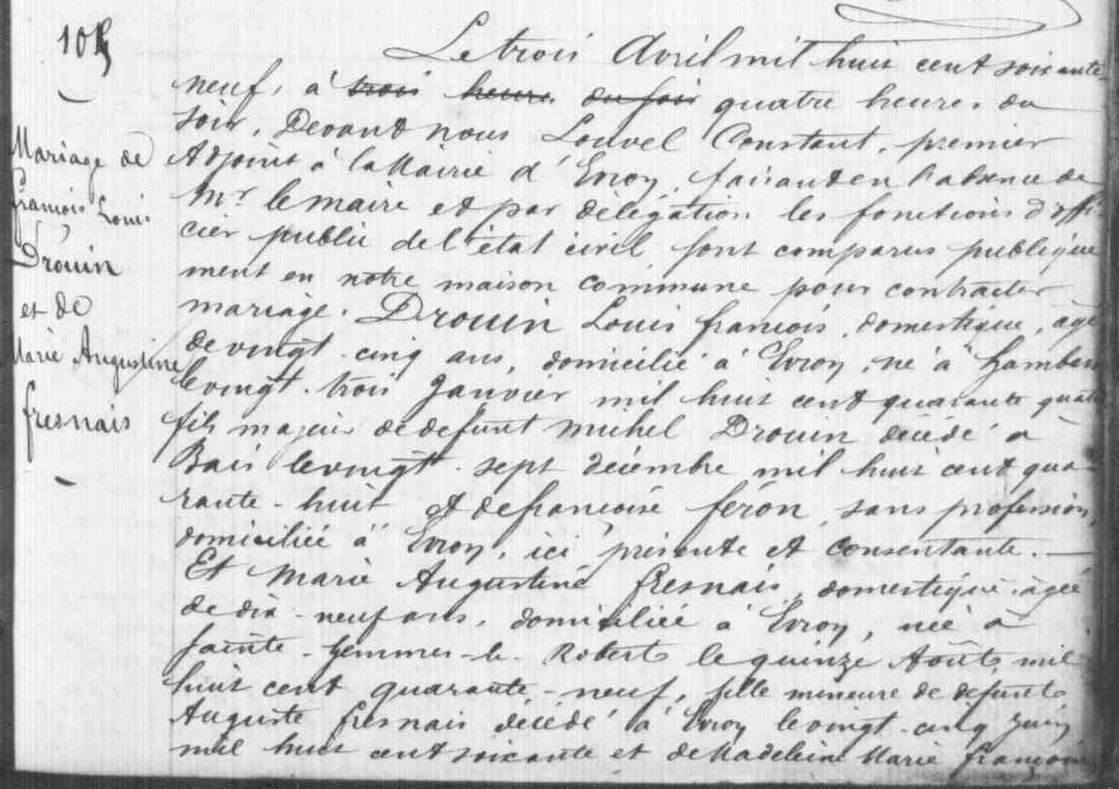 10
Mariage de
françois Louis
Drouin
et de
Marie Augustine
fresnais
Le trois Avril mil huit cent soixante
neuf, à trois heures du soir quatre heures du
soir, Devant nous Louvel Constant, premier
Adjoint à la Mairie d'Evron, faisant en l'absence de
Mr le maire et par délégation les fonctions d'offi-
cier public de l'état civil sont comparus publique
ment en notre maison commune pour contracter
mariage. Drouin Louis françois, domestique, âgé
de vingt-cinq ans, domicilié à Evron, né à hambers
le vingt-trois Janvier mil huit cent quarante quatre
fils majeur de defunt Michel Drouin décédé à
Bais le vingt-sept décembre mil huit cent qua
rante-huit et de françoise féron, sans profession,
domiciliée à Evron, ici présente et consentante.
Et Marie Augustine fresnais, domestique âgée
de dix-neuf ans, domiciliée à Evron, née à
Sainte-Gemmes-le-Robert le quinze Août mil
huit cent quarante-neuf, fille mineure de defunt
Auguste fresnais décédé à Evron le vingt-cinq Juin
mil huit cent soixante et de Madeleine Marie françoise